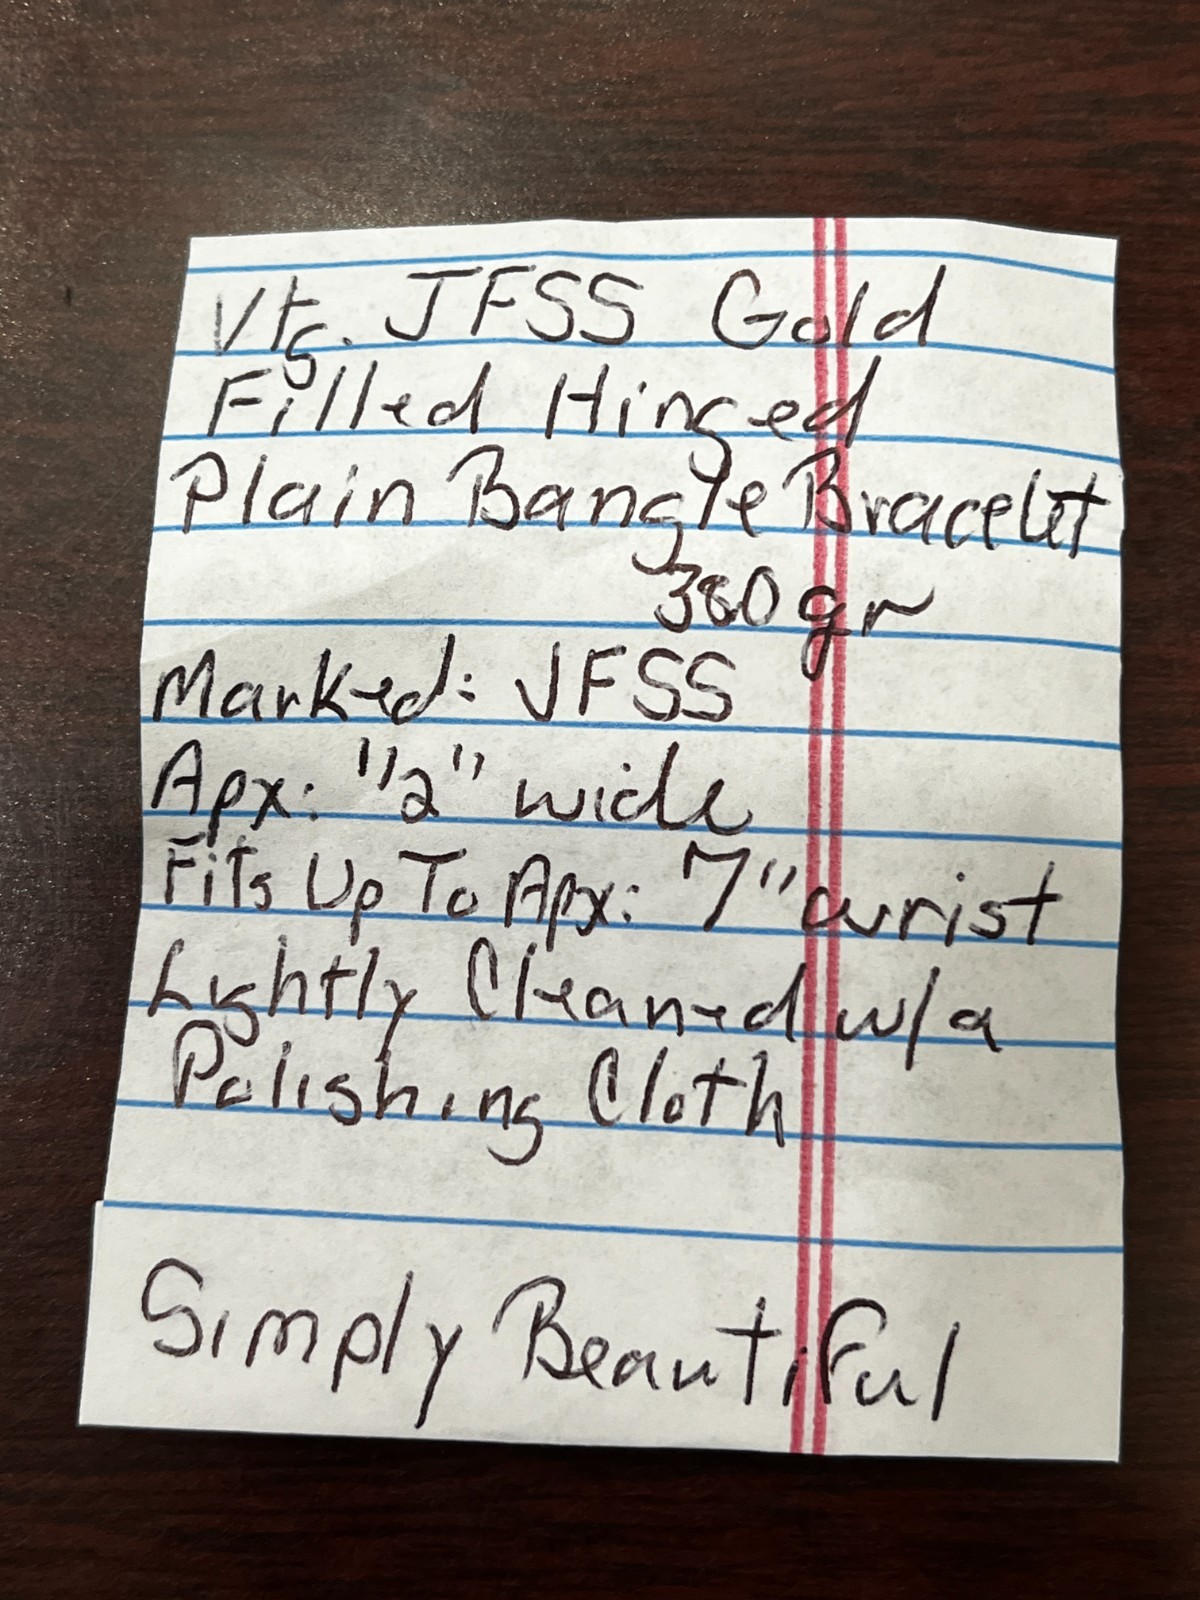 Vtg. JFSS Gold
Filled Hinged
Plain Bangle Bracelet
380 gr
Marked: JFSS
Apx: "2" wide
Fits Up To Apx: 7" wrist
Lightly Cleaned w/a
Polishing Cloth
Simply Beautiful